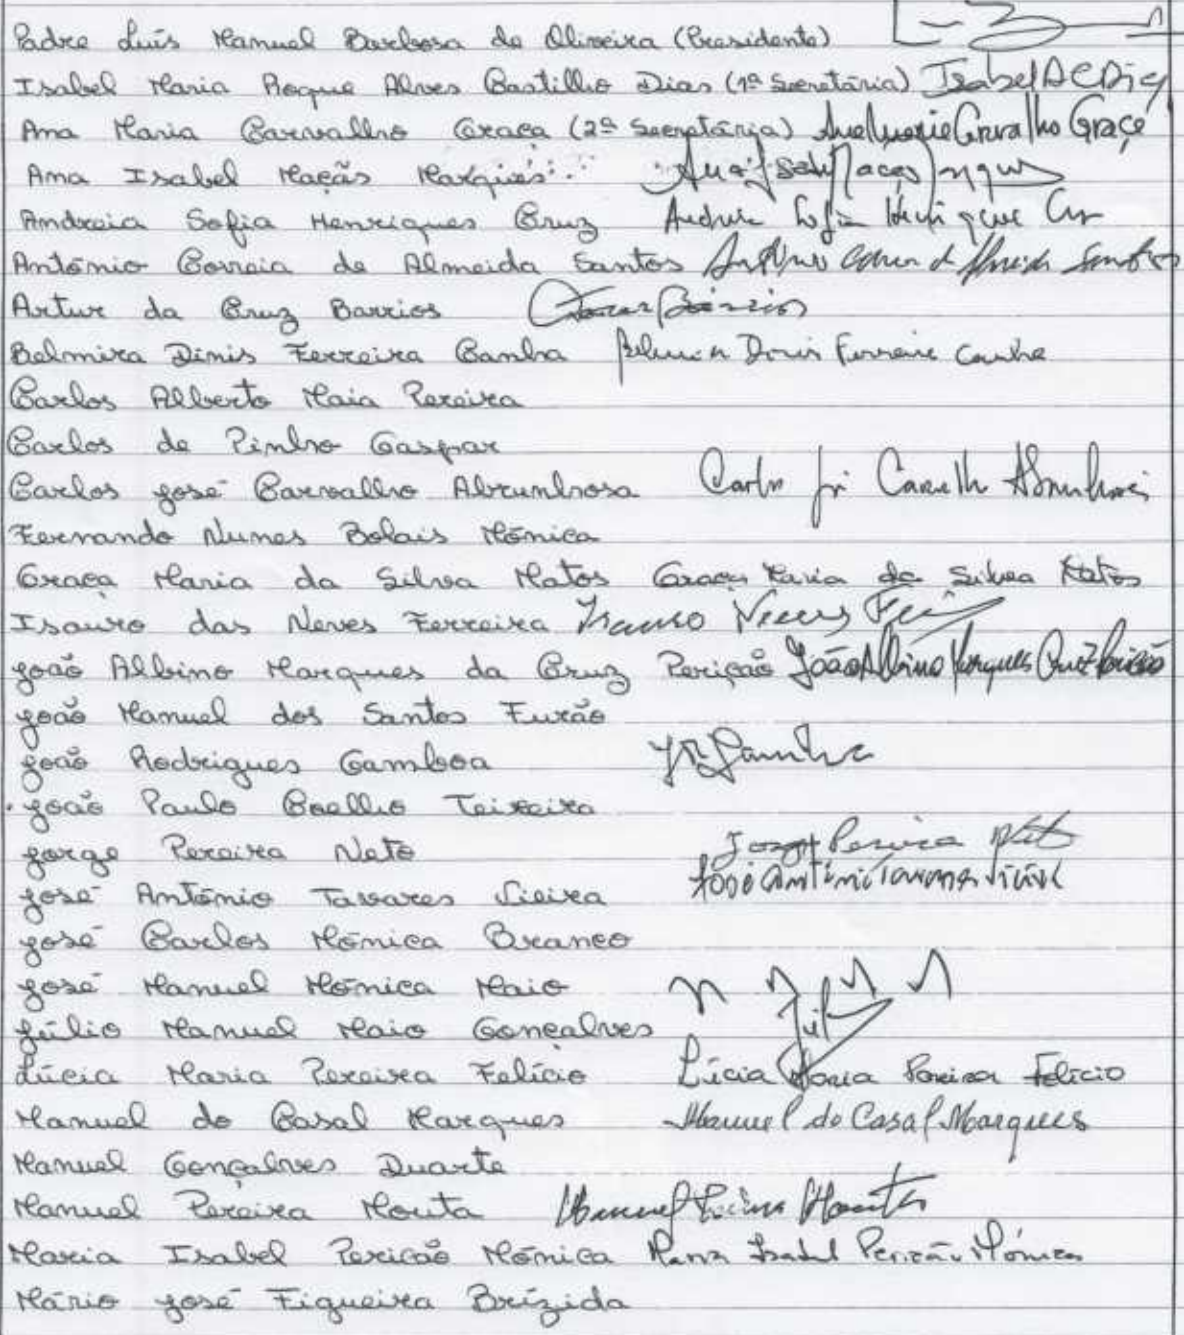 Padre Luís Manuel Barbosa de Oliveira (Presidente)
Isabel Maria Roque Alves Castilho Dias (1ª Secretária) Isabel A C Dias
Ana Maria Carvalho Graça (2ª Secretária) Ana Maria Carvalho Graça
Ana Isabel Maçãs Marques
Andreia Sofia Henriques Cruz Andreia Sofia Henriques Cruz
António Correia de Almeida Santos António Correia de Almeida Santos
Artur da Cruz Barrios
Belmira Dinis Ferreira Canha Belmira Dinis Ferreira Canha
Carlos Alberto Maia Pereira
Carlos de Pinho Gaspar
Carlos José Carvalho Abrunhosa Carlos José Carvalho Abrunhosa
Fernando Nunes Bolais Mónica
Graça Maria da Silva Matos Graça Maria da Silva Matos
Isauro das Neves Ferreira Isauro Neves
João Albino Marques da Cruz Pericão João Albino Marques Cruz Pericão
João Manuel dos Santos Furão
João Rodrigues Gamboa
João Paulo Coelho Teixeira
Jorge Pereira Neto Jorge Pereira Neto
José António Tavares Vieira José António Tavares Vieira
José Carlos Mónica Branco
José Manuel Mónica Maio
Júlio Manuel Maio Gonçalves
Lúcia Maria Pereira Felício Lúcia Maria Pereira Felício
Manuel do Casal Marques Manuel do Casal Marques
Manuel Gonçalves Duarte
Manuel Pereira Mouta Manuel Pereira Mouta
Maria Isabel Pericão Mónica Maria Isabel Pericão Mónica
Mário José Figueira Brízida